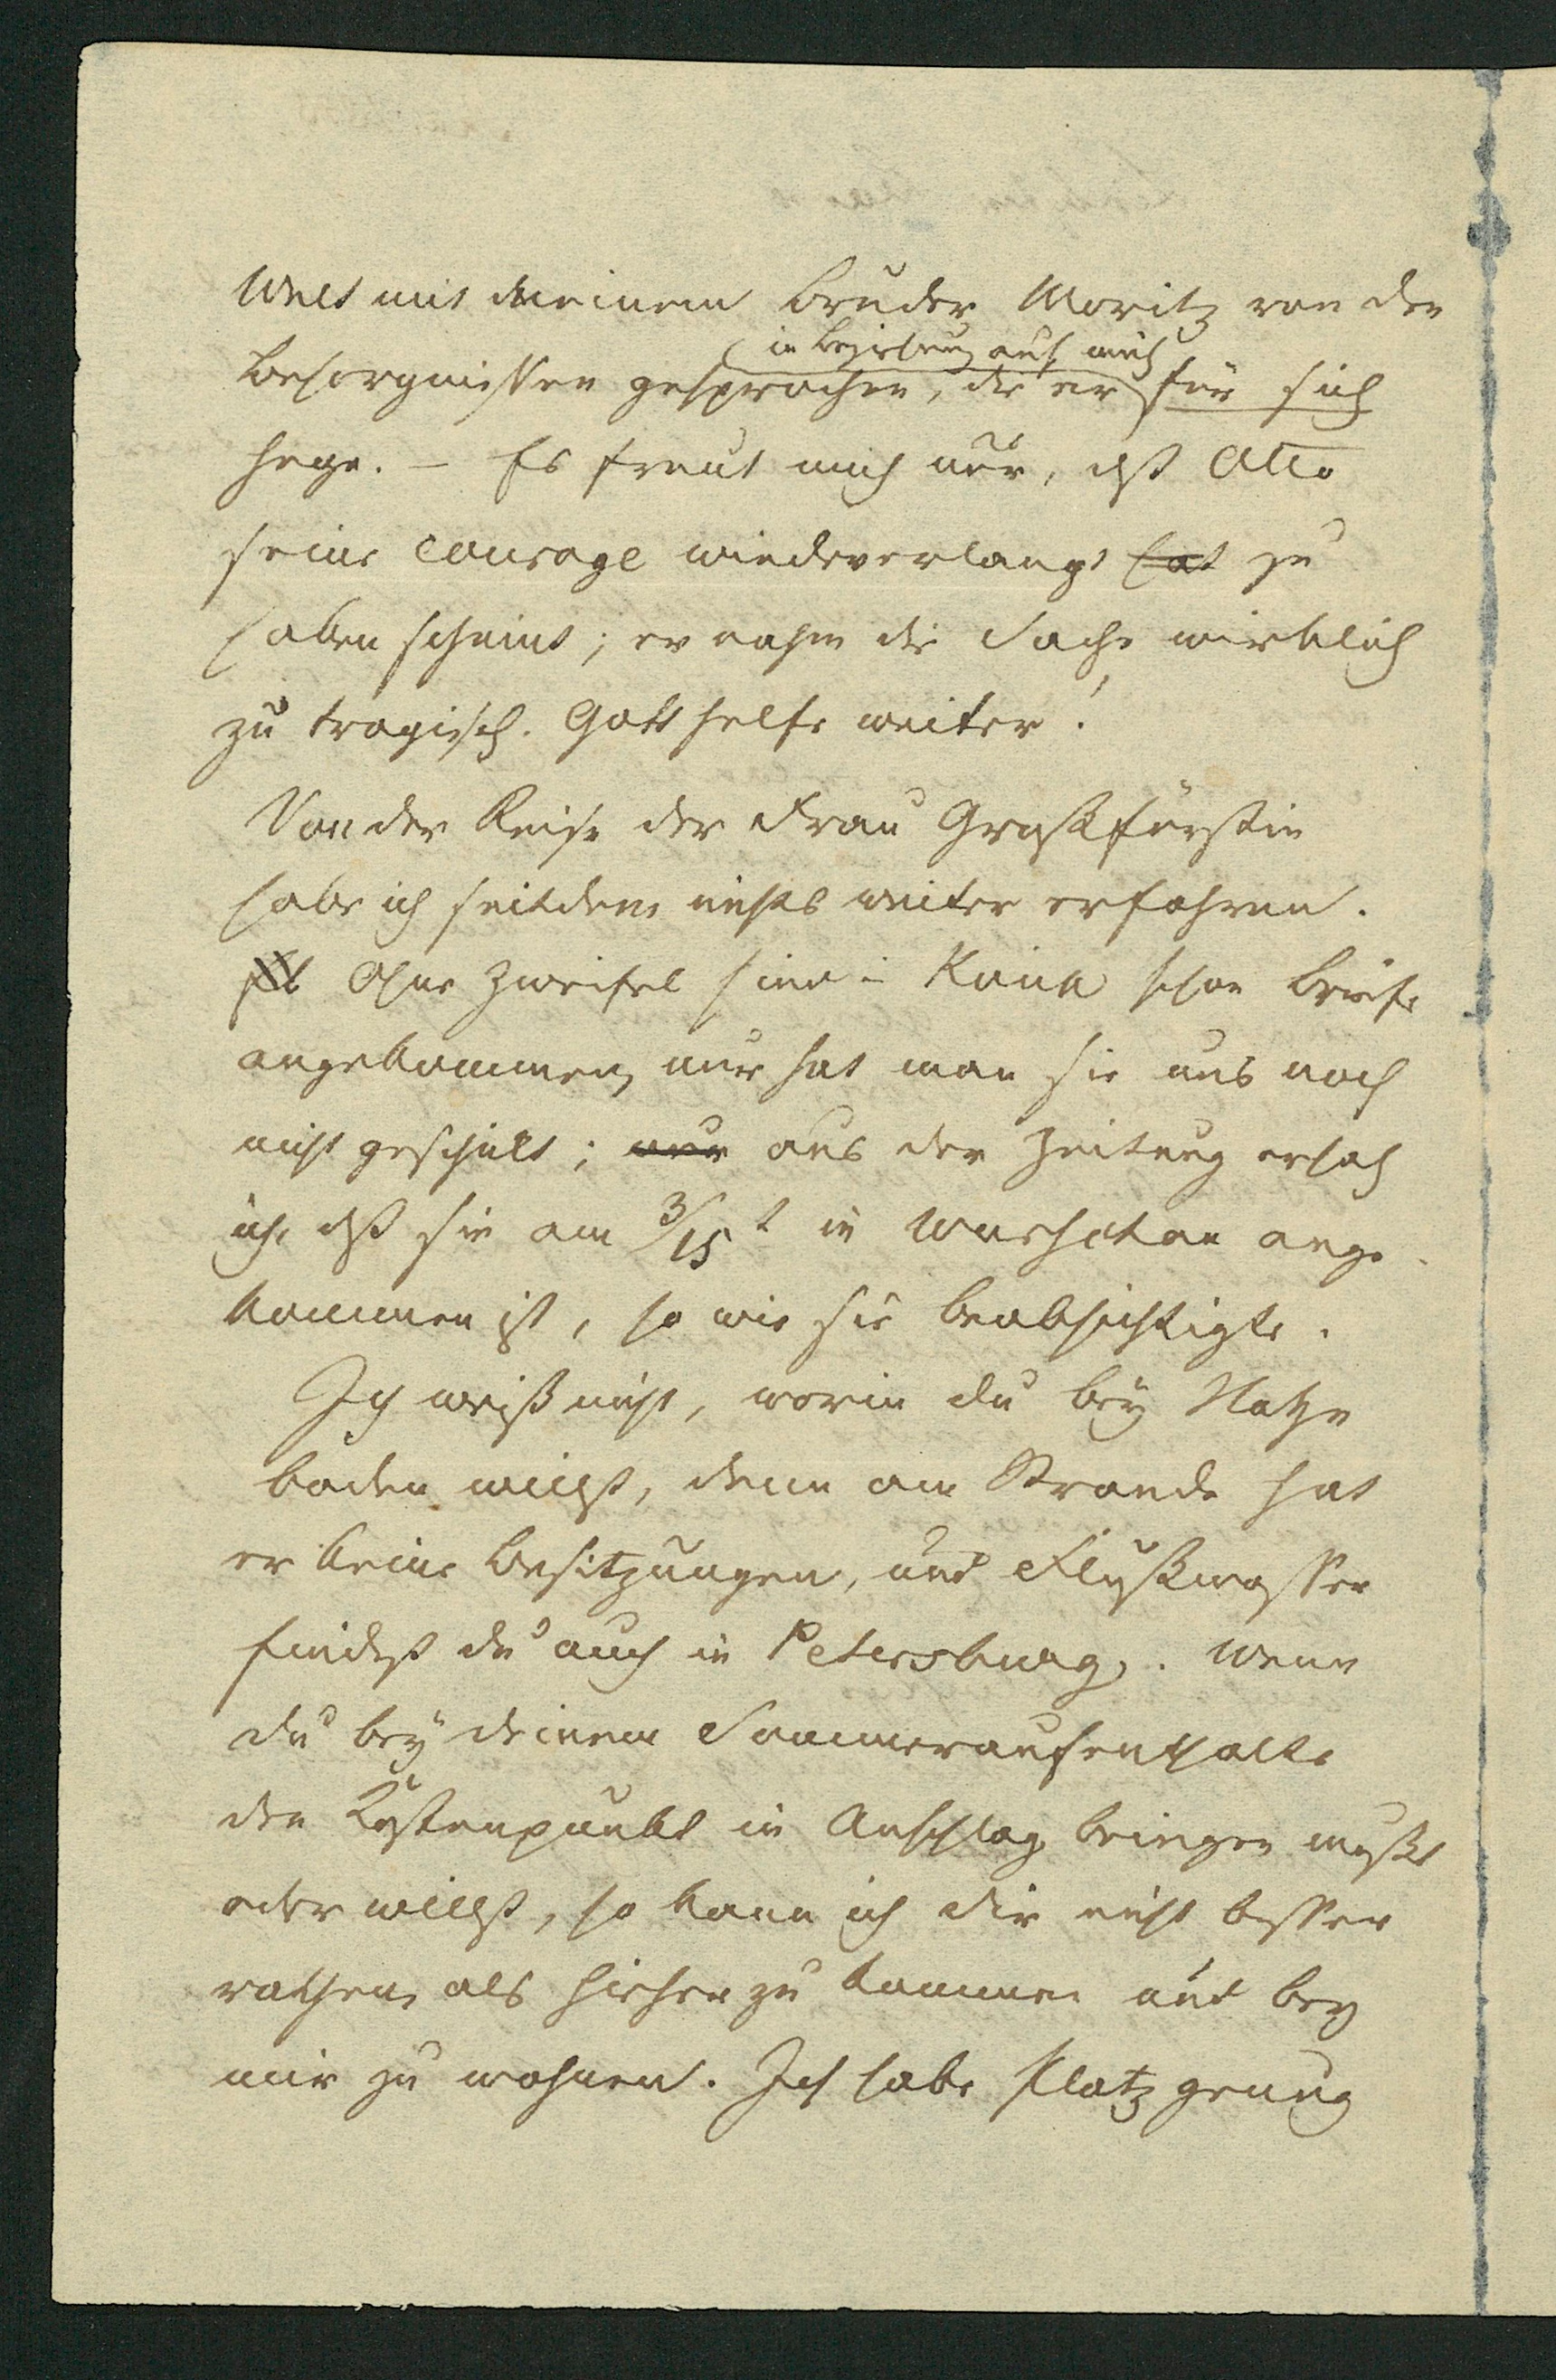 Welt mit meinem Bruder Moritz von den
in Beziehung auf mich
Besorgnissen gesprochen, die er für sich
hege. – Es freut mich nur, dß Otto
seine courage wiederverlangt hat zu
haben scheint; er nahm die Sache wirklich
zu tragisch. Gott helfe weiter!
Von der Reise der Frau Großfürstin
habe ich seitdem nichts weiter erfahren.
Ohne Zweifel sind schon Briefe
angekommen, nur hat man sie uns noch
nicht geschickt; nur aus der Zeitung ersah
ich, dß sie am 3/15t in Warschau ange-
kommen ist, so wie sie beabsichtigte.
Ich weiß nicht, worin du bey
baden willst, denn am Strande hat
er keine Besitzungen, und Flußwasser
findest du auch in Petersburg. Wenn
du bey deinem Sommeraufenthalte
den Kostenpunkt in Anschlag bringen mußt
oder willst, so kann ich dir nicht besser
rathen, als hieher zu kommen und bey
mir zu wohnen. Ich habe Platz genug